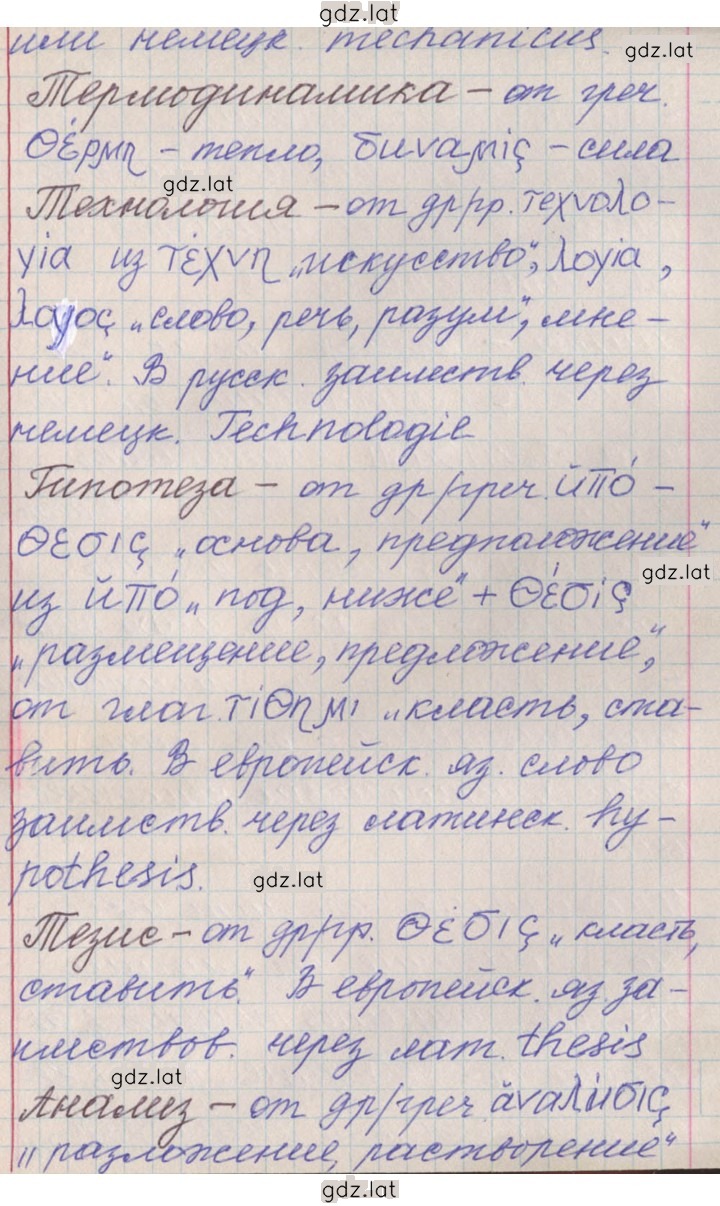 gdz.lat
или немецк. mechanicus.
gdz.lat
Термодинамика – от греч.
Θέρμη – тепло, δυναμίς – сила
gdz.lat
Технология – от др/гр. τεχνολο-
γία из τέχνη „искусство“, λογία,
λογος „слово, речь, разум“, мне-
ние“. В русск. заимств. через
немецк. Technologie
Гипотеза – от др/греч. ὑπό-
θεσις „основа, предположение“
gdz.lat
из ὑπό „под, ниже“ + Θέσίς
„размещение, предложение“,
от глаг. τίθημι „класть, ста-
вить. В европейск. яз. слово
заимств. через латинск. hy-
pothesis.
gdz.lat
Тезис – от др/гр. Θέσις „класть,
ставить“. В европейск. яз. за-
имствов. через лат. thesis
gdz.lat
Анализ – от др/греч. ἀναλύσις
„разложение, растворение“
gdz.lat